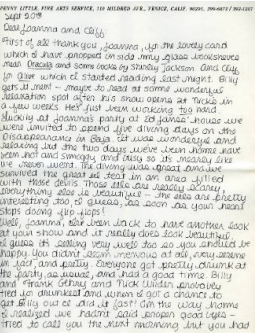 PENNY LITTLE, FINE ARTS SERVICE, 110 MILDRED AVE., VENICE, CALIF. 90291,
Sept 20th
Dear Joanna and Cliff
First of all thank you, Joanna, for the lovely card
which I have propped in side my glass bookshelves
near Dracula and some books by Shirley Jackson. And Cliff
for Alive which I started reading last night. Billy
gets it next - maybe to read at some wonderful
relaxation spot after his show opens at Nick's in
a few weeks. He's just been working too hard
Luckily at Joanna's party at Ed Janss' house we
were invited to spend five diving days on the
It was wonderful and
relaxing but the two days we've been home have
been hot and smoggy and busy so it's nearly like
we never went. The diving was great and we
survived the great in an area filled
with those devils. Those are really scarey,
everything else is beautiful - the are pretty
interesting too, I guess, as soon as your heart
stops doing flip flops!
Well, Joanna, I've been back to have another look
at your show and it really does look beautiful,
I guess it's selling very well too so you should be
happy. You didn't seem nervous at all, very serene
in fact, and pretty. Everyone got pretty drunk at
the party, as usual, and had a good time. Billy
and Frank Gehry and Nick Wilder probably
tied as drunkest and when I got a chance to
get Billy out I did it fast! On the way home
I realized we hadn't said proper good byes -
tried to call you the next morning but you had